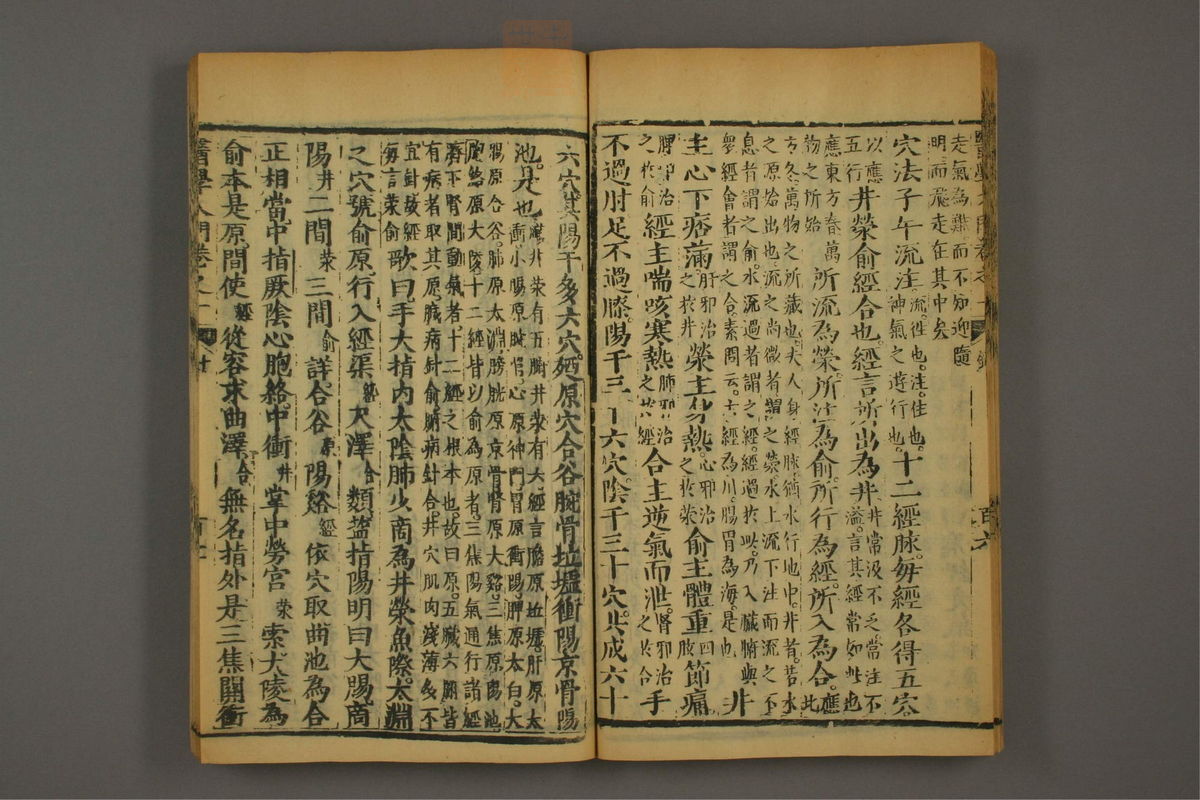 走氣為難而不知迎隨
明而飛走在其中矣
穴法子午流注流往也。注住也。神氣之遊行也。十二經脉每經各得五穴
以應五行井滎俞經合也。經言所出為井井常汲不乏常注不溢。言其經常如此也
應東方春萬物之所始所流為滎所注為俞所行為經。所入為合。應此
方冬萬物之所藏也夫人身經脉猶水行地中。井者。若水
之原始出也。流之尚微者謂之滎水上流下注而流之不
息者謂之俞。水流過者謂之經。經過於此。乃入臟腑與
衆經會者謂之合。素問云。六經為川。腸胃為海。是也井
主心下痞滿。肝邪治之於井滎主身熱。心邪治之於滎俞主體重四肢節痛
脾邪治之於俞經主喘咳寒熱肺邪治之於經合主逆氣而泄。腎邪治之於合手
不過肘足不過膝。陽干三十六穴陰干三十穴。共成六十
六穴其陽干多六穴廼原穴合谷腕骨坵墟衝陽京骨陽
池。是也臟井滎有五腑井滎有六經言膽原坵墟。肝原太
衝小腸原腕骨。心原神門胃原衝陽。脾原太白。大
腸原合谷。肺原太淵膀胱原京骨腎原大谿。三焦原陽池
胞絡原大陵十二經皆以俞為原者。三焦陽氣通行諸經
臍下腎間動氣者。十二經之根本也。故曰原。五臟六腑皆
有病者取其原。臟病針俞腑病針合。井穴肌肉淺薄多不
宜針故經每言滎俞歌曰。手大指內太陰肺少商為井滎魚際。太淵
之穴號俞原。行入經渠經尺澤合類。盐指陽明曰大腸。商
陽井二間滎三間俞詳合谷原陽谿經依穴取曲池為合
正相當中指厥陰心胞絡。中衝井掌中勞宮滎索大陵為
俞本是原。間使經從容求曲澤合無名指外是三焦關衝
醫學入門卷之一